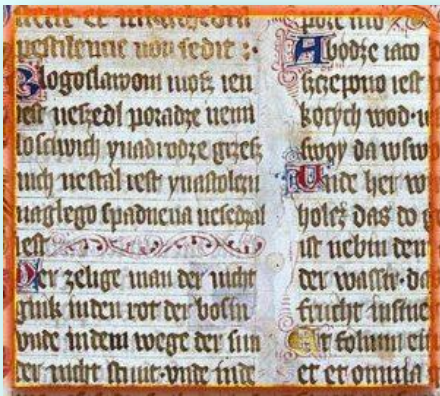 pestilencie non sedit :
Blogoslawony mosz ien
iest neszedl poradze nemi
losciwich ynadrodze grzesz
nich nestal iest ynastolczu
naglego spadnena nesedzal
iest
Der zelige man der nicht
gink inden rot der bosin
vnde indem wege der sun
der nicht stunt· vnde inde
pole
Abodze iaco
sczepono iest
kotych wod· 
swoy da wswo
Vnde her w
holcz das do g
ist nebin dem
der wassir· da
frucht
Et folium ei
et et omnia